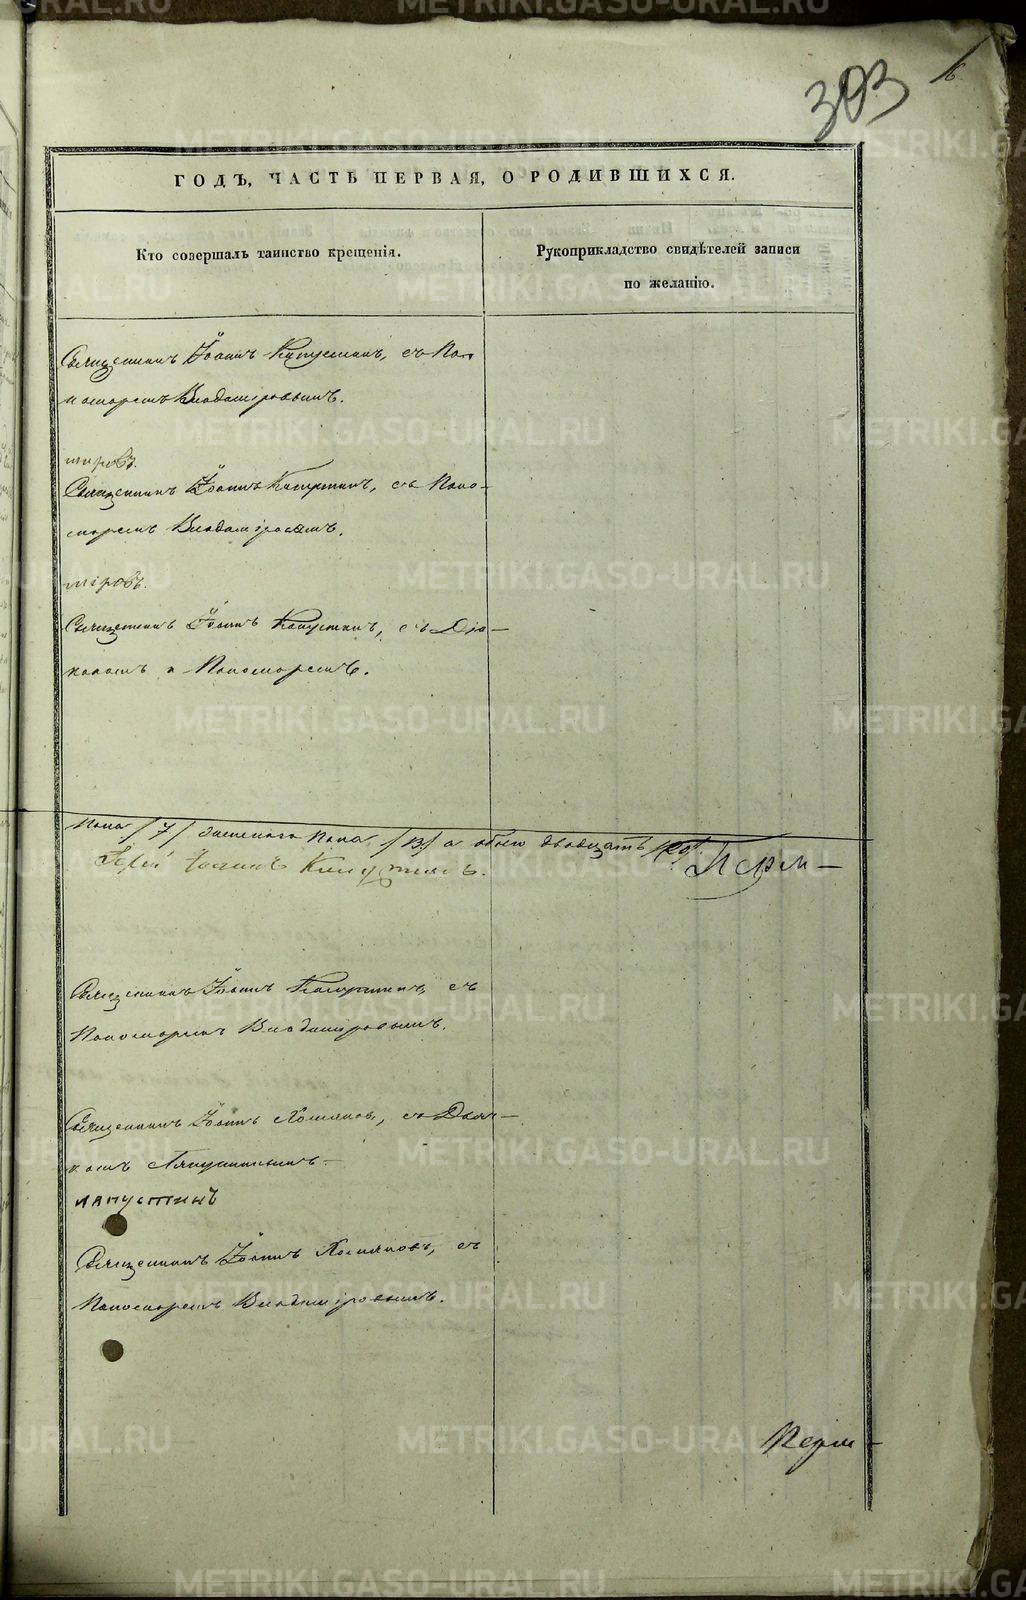 303
16
ГОДЪ, ЧАСТЬ ПЕРВАЯ, О РОДИВШИХСЯ.
Кто совершалъ таинство крещенія.
Рукоприкладство свидѣтелей записи
по желанію.
Священникъ Іоаннъ Капустинъ, съ По-
номаремъ Владиміровымъ.
міровъ.
Священникъ Іоаннъ Капустинъ, съ Поно-
маремъ Владиміровымъ.
міровъ.
Священникъ Іоаннъ Капустинъ, съ Діа-
кономъ и Пономаремъ.
пола /7/ женскаго пола /13/ а обоего двадцать /20/
Іерей Іоаннъ Капустинъ.
Перм-
Священникъ Іоаннъ Капустинъ, съ
Пономаремъ Владиміровымъ.
Священникъ Іоаннъ Хомяковъ, съ Дьяч-
комъ Лапустинымъ.
лапустинъ
Священникъ Іоаннъ Хомяковъ, съ
Пономаремъ Владиміровымъ.
METRIKI.GASO-URAL.RU